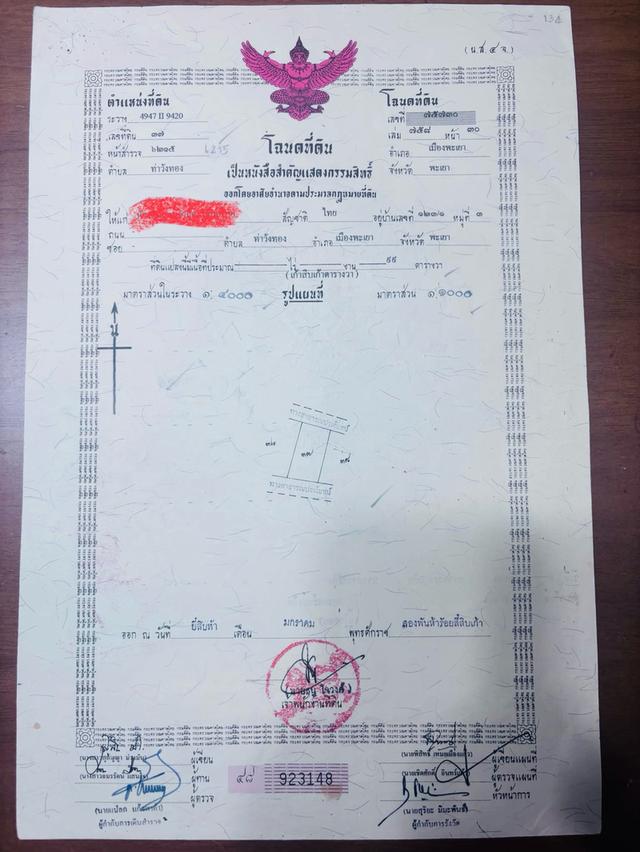 134
(น.ส.๔ จ.)
ตำแหน่งที่ดิน
ระวาง 4947 II 9420
เลขที่ดิน ๓๗
หน้าสำรวจ ๖๒๑๕ 6215
ตำบล ท่าวังทอง
โฉนดที่ดิน
เลขที่ ๗๕๗๓๐
เล่ม ๗๕๘ หน้า ๓๐
อำเภอ เมืองพะเยา
จังหวัด พะเยา
โฉนดที่ดิน
เป็นหนังสือสำคัญแสดงกรรมสิทธิ์
ออกโดยอาศัยอำนาจตามประมวลกฎหมายที่ดิน
ให้แก่ สัญชาติ ไทย อยู่บ้านเลขที่ ๑๒๓/๑ หมู่ที่ ๓
ถนน
ซอย ตำบล ท่าวังทอง อำเภอ เมืองพะเยา จังหวัด พะเยา
ที่ดินแปลงนี้มีเนื้อที่ประมาณ ไร่ งาน ๙๙ ตารางวา
(เก้าสิบเก้าตารางวา)
มาตราส่วนในระวาง ๑:๔๐๐๐ รูปแผนที่ มาตราส่วน ๑:๑๐๐๐
น
ทางสาธารณประโยชน์
๓๗
ทางสาธารณประโยชน์
ออก ณ วันที่ ยี่สิบห้า เดือน มกราคม พุทธศักราช สองพันห้าร้อยสี่สิบเก้า
เจ้าพนักงานที่ดิน
ผู้เขียน
ผู้ทาน
ผู้ตรวจ
ผู้กำกับการเดินสำรวจ
๔๘ 923148
ผู้เขียนแผนที่
ผู้ตรวจแผนที่
หัวหน้าการ
ผู้กำกับการรังวัด